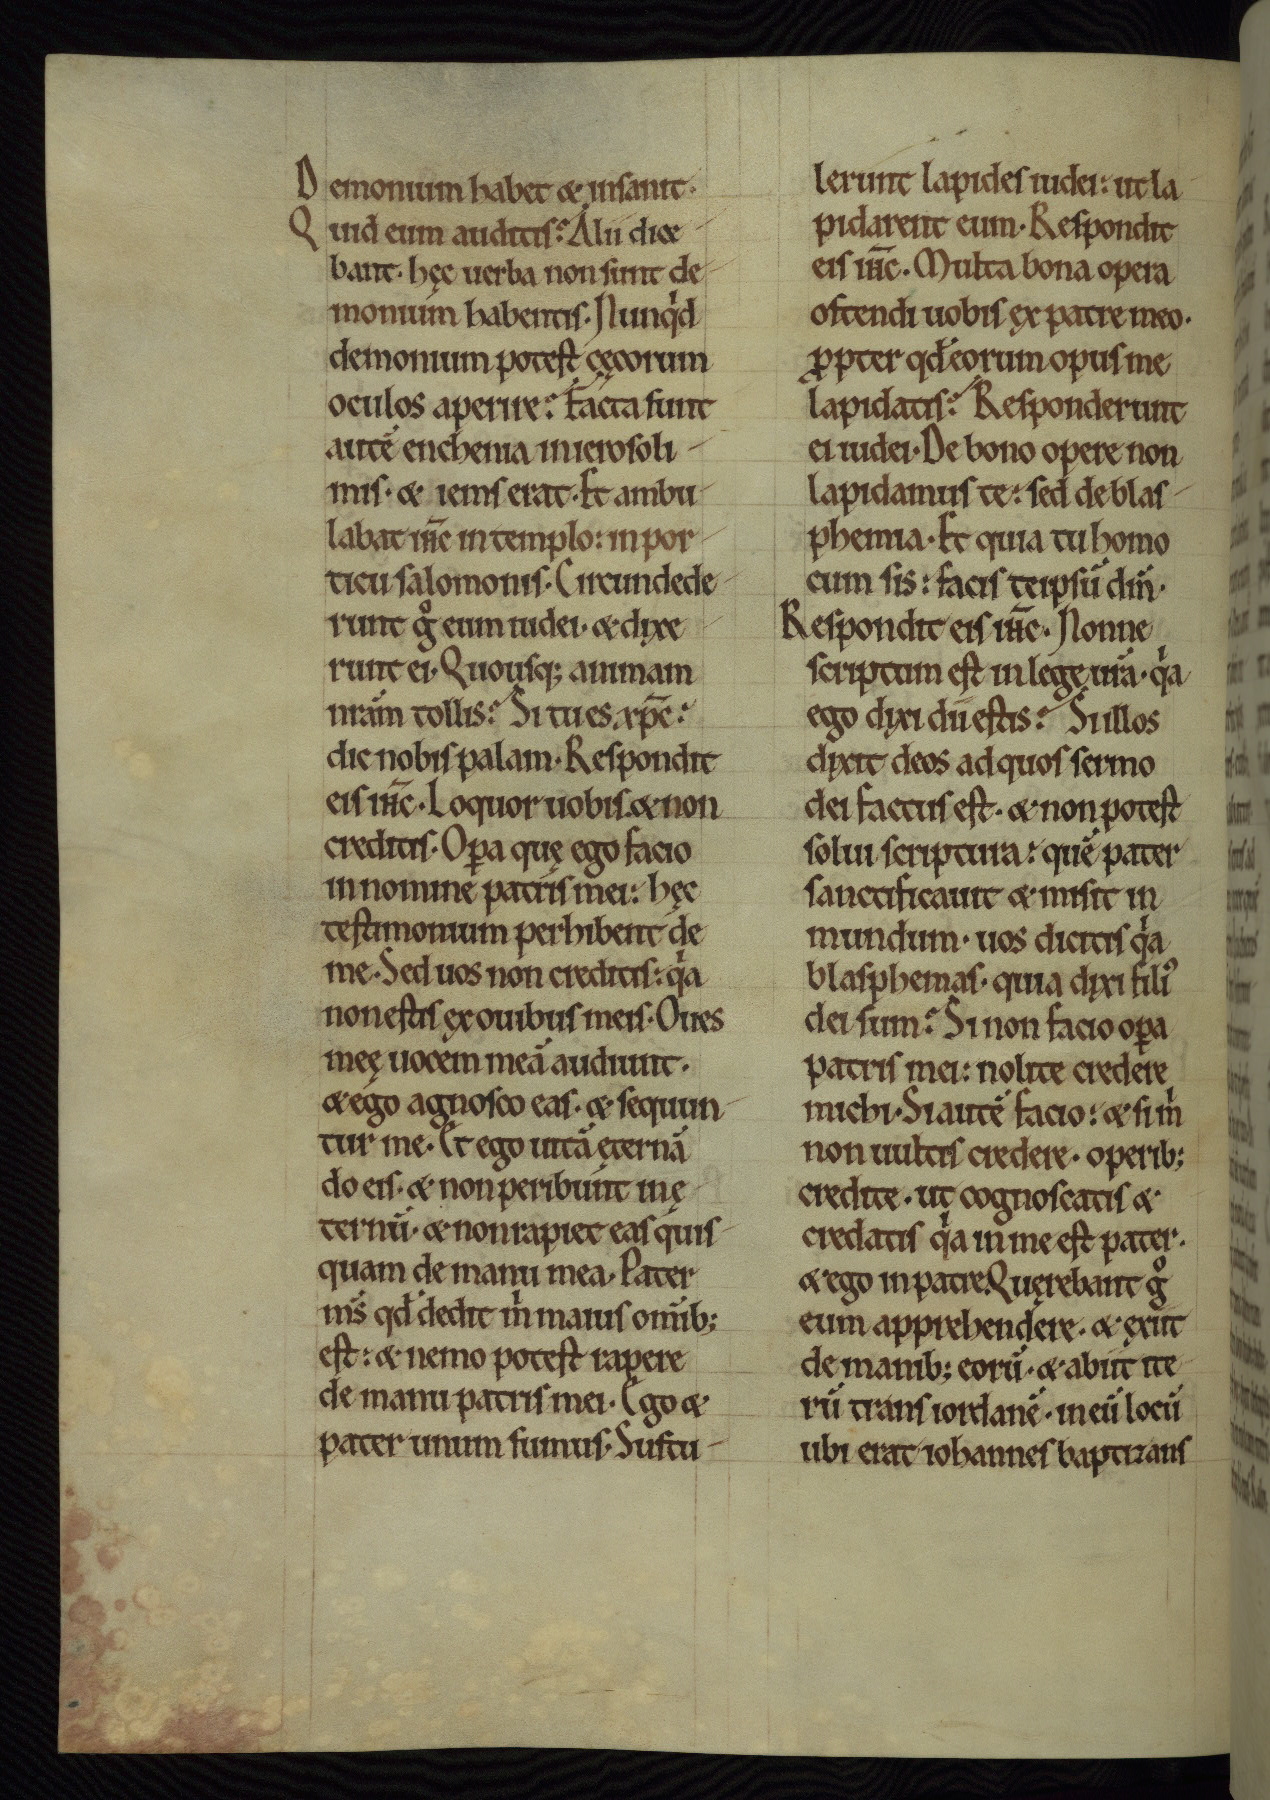 Demonium habet & insanit·
Quid eum auditis? Alii dice
bant· hęc uerba non sunt de
monium habentis· Nunqͥd
demonium potest cęcorum
oculos aperire? Facta sunt
autē enchenia in ierosoli
mis· & iems erat· Et ambu
labat ih̅c in templo: in por
ticu salomonis· Circundede
runt gͦ eum iudei· & dixe
runt ei· Quousq; animam
nr̅am tollis? Si tu es xp̅c:
dic nobis palam· Respondit
eis ih̅c· Loquor uobis· & non
creditis· Oꝑa quę ego facio
in nomine patris mei: hęc
testimonium perhibent de
me· Sed uos non creditis: qͥa
non estis ex ouibus meis· Oues
meę uocem meā audiunt·
& ego agnosco eas· & sequun
tur me· Et ego uitā ęternā
do eis· & non peribunt in ę
ternū· & non rapiet eas quis
quam de manu mea· Pater
ms̅ qd̅ dedit mͥ maius om̅ib;
est: & nemo potest rapere
de manu patris mei· Ego &
pater unum sumus· Sustu
lerunt lapides iudei: ut la
pidarent eum· Respondit
eis ih̅c· Multa bona opera
ostendi uobis ex patre meo·
ꝓpter qd̅ eorum opus me
lapidatis? Responderunt
ei iudei· De bono opere non
lapidamus te: sed de blas
phemia· Et quia tu homo
cum sis: facis teipsū dm̅·
Respondit eis ih̅c· Nonne
scriptum est in lege ur̅a· qͥa
ego dixi dii estis? Si illos
dixit deos ad quos sermo
dei factus est· & non potest
solui scriptura: quē pater
sanctificauit & misit in
mundum· uos dicitis qͥa
blasphemas· quia dixi filiꝰ
dei sum? Si non facio oꝑa
patris mei: nolite credere
michi· Si autē facio: & si mͥ
non uultis credere· operib;
credite· ut cognoscatis &
credatis qͥa in me est pater·
& ego in patre· Quęrebant gͦ
eum apprehendere· & exiit
de manib; eorū· & abiit ite
rū trans iordanē· in eū locū
ubi erat iohannes baptizans